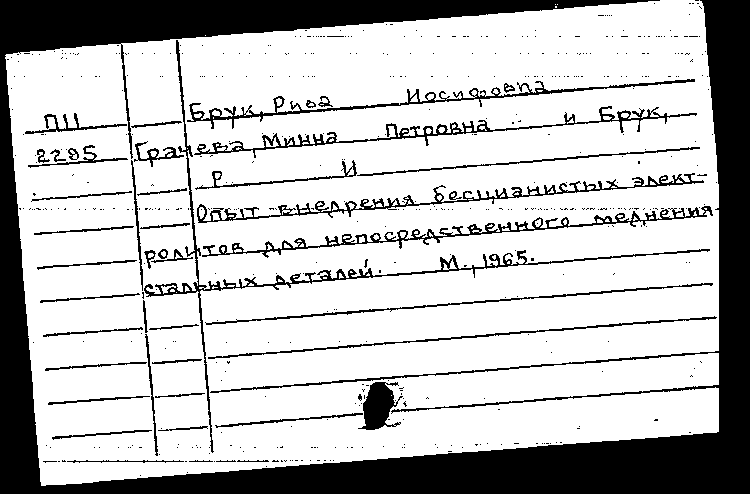 П11 Брук, Рива Иосифовна
2295 Грачева, Минна Петровна и Брук,
Р И
Опыт внедрения бесцианистых элект-
ролитов для непосредственного меднения
стальных деталей. М., 1965.